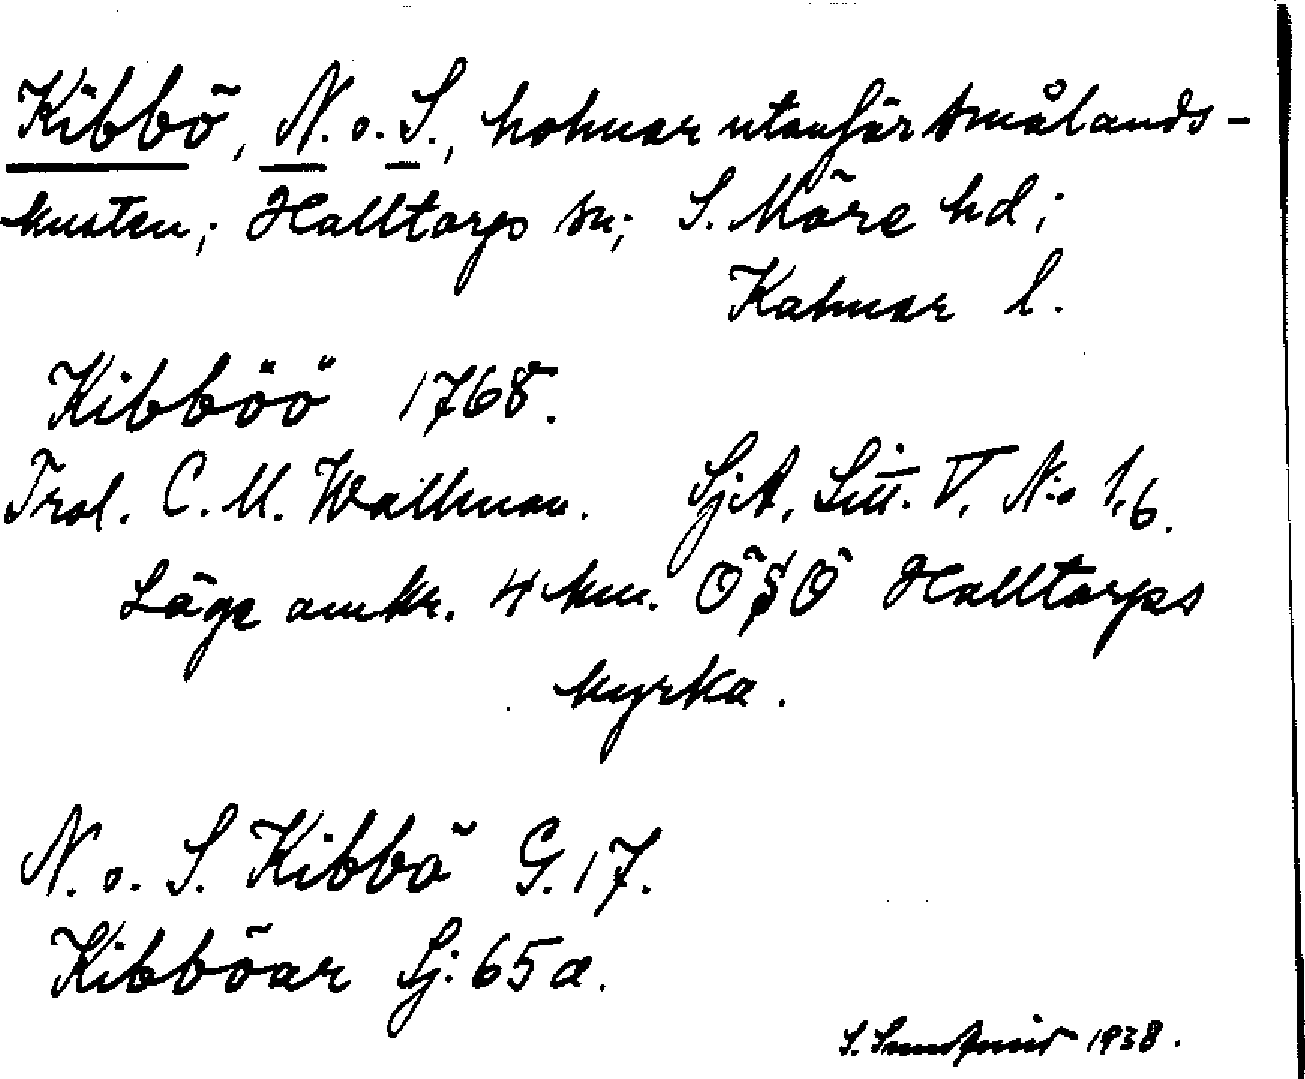 Kibbö, N. o. S., holmar utanför Smålands-
kusten; Halltorps sn; S. Möre hd;
Kalmar l.
Kibböö 1768.
Trol. C. M. Wallman. SjA. Litt. V. N:o 1,6.
Läge omkr. 4 km. ÖSÖ Halltorps
kyrka.
N. o. S. Kibbö G. 17.
Kibböar Sj: 65 a.
S. 1938.